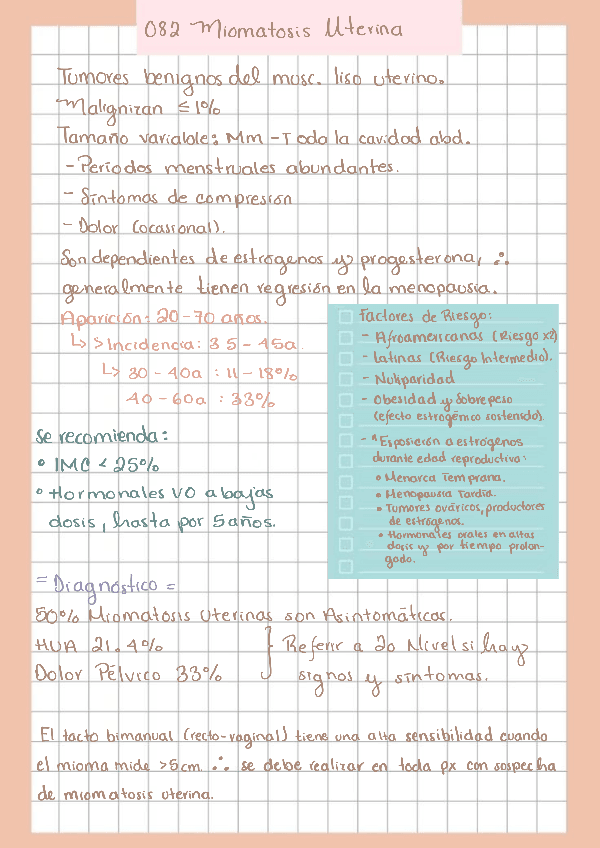 082 Miomatosis Uterina
Tumores benignos del musc. liso uterino.
Malignizan ≤ 1%
Tamaño variable: Mm - Toda la cavidad abd.
- Períodos menstruales abundantes.
- Síntomas de compresión
- Dolor (ocasional).
Son dependientes de estrógenos y progesterona, ∴
generalmente tienen regresión en la menopausia.
Aparición: 20-70 años.
↳ > Incidencia: 35-45a.
↳ 30-40a : 11-18%
40-60a : 33%
Factores de Riesgo:
- Afroamericanas (Riesgo x2)
- Latinas (Riesgo Intermedio).
- Nuliparidad
- Obesidad y Sobrepeso
(efecto estrogémico sostenido).
- *Exposición a estrógenos
durante edad reproductiva:
• Menarca Temprana.
• Menopausia Tardía.
• Tumores ováricos, productores
de estrógenos.
• Hormonales orales en altas
dosis y por tiempo prolon-
gado.
Se recomienda:
• IMC < 25%
• Hormonales VO a bajas
dosis, hasta por 5 años.
= Diagnóstico =
50% Miomatosis Uterinas son Asintomáticas.
HUA 21.4%
Dolor Pélvico 33%
} Referir a 2o Nivel si hay
signos y síntomas.
El tacto bimanual (recto-vaginal) tiene una alta sensibilidad cuando
el mioma mide >5cm. ∴ se debe realizar en toda px con sospecha
de miomatosis uterina.